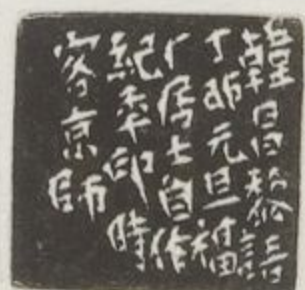 韓昌黎語
丁卯元旦福
厂居士自作
紀秊印時
客京師